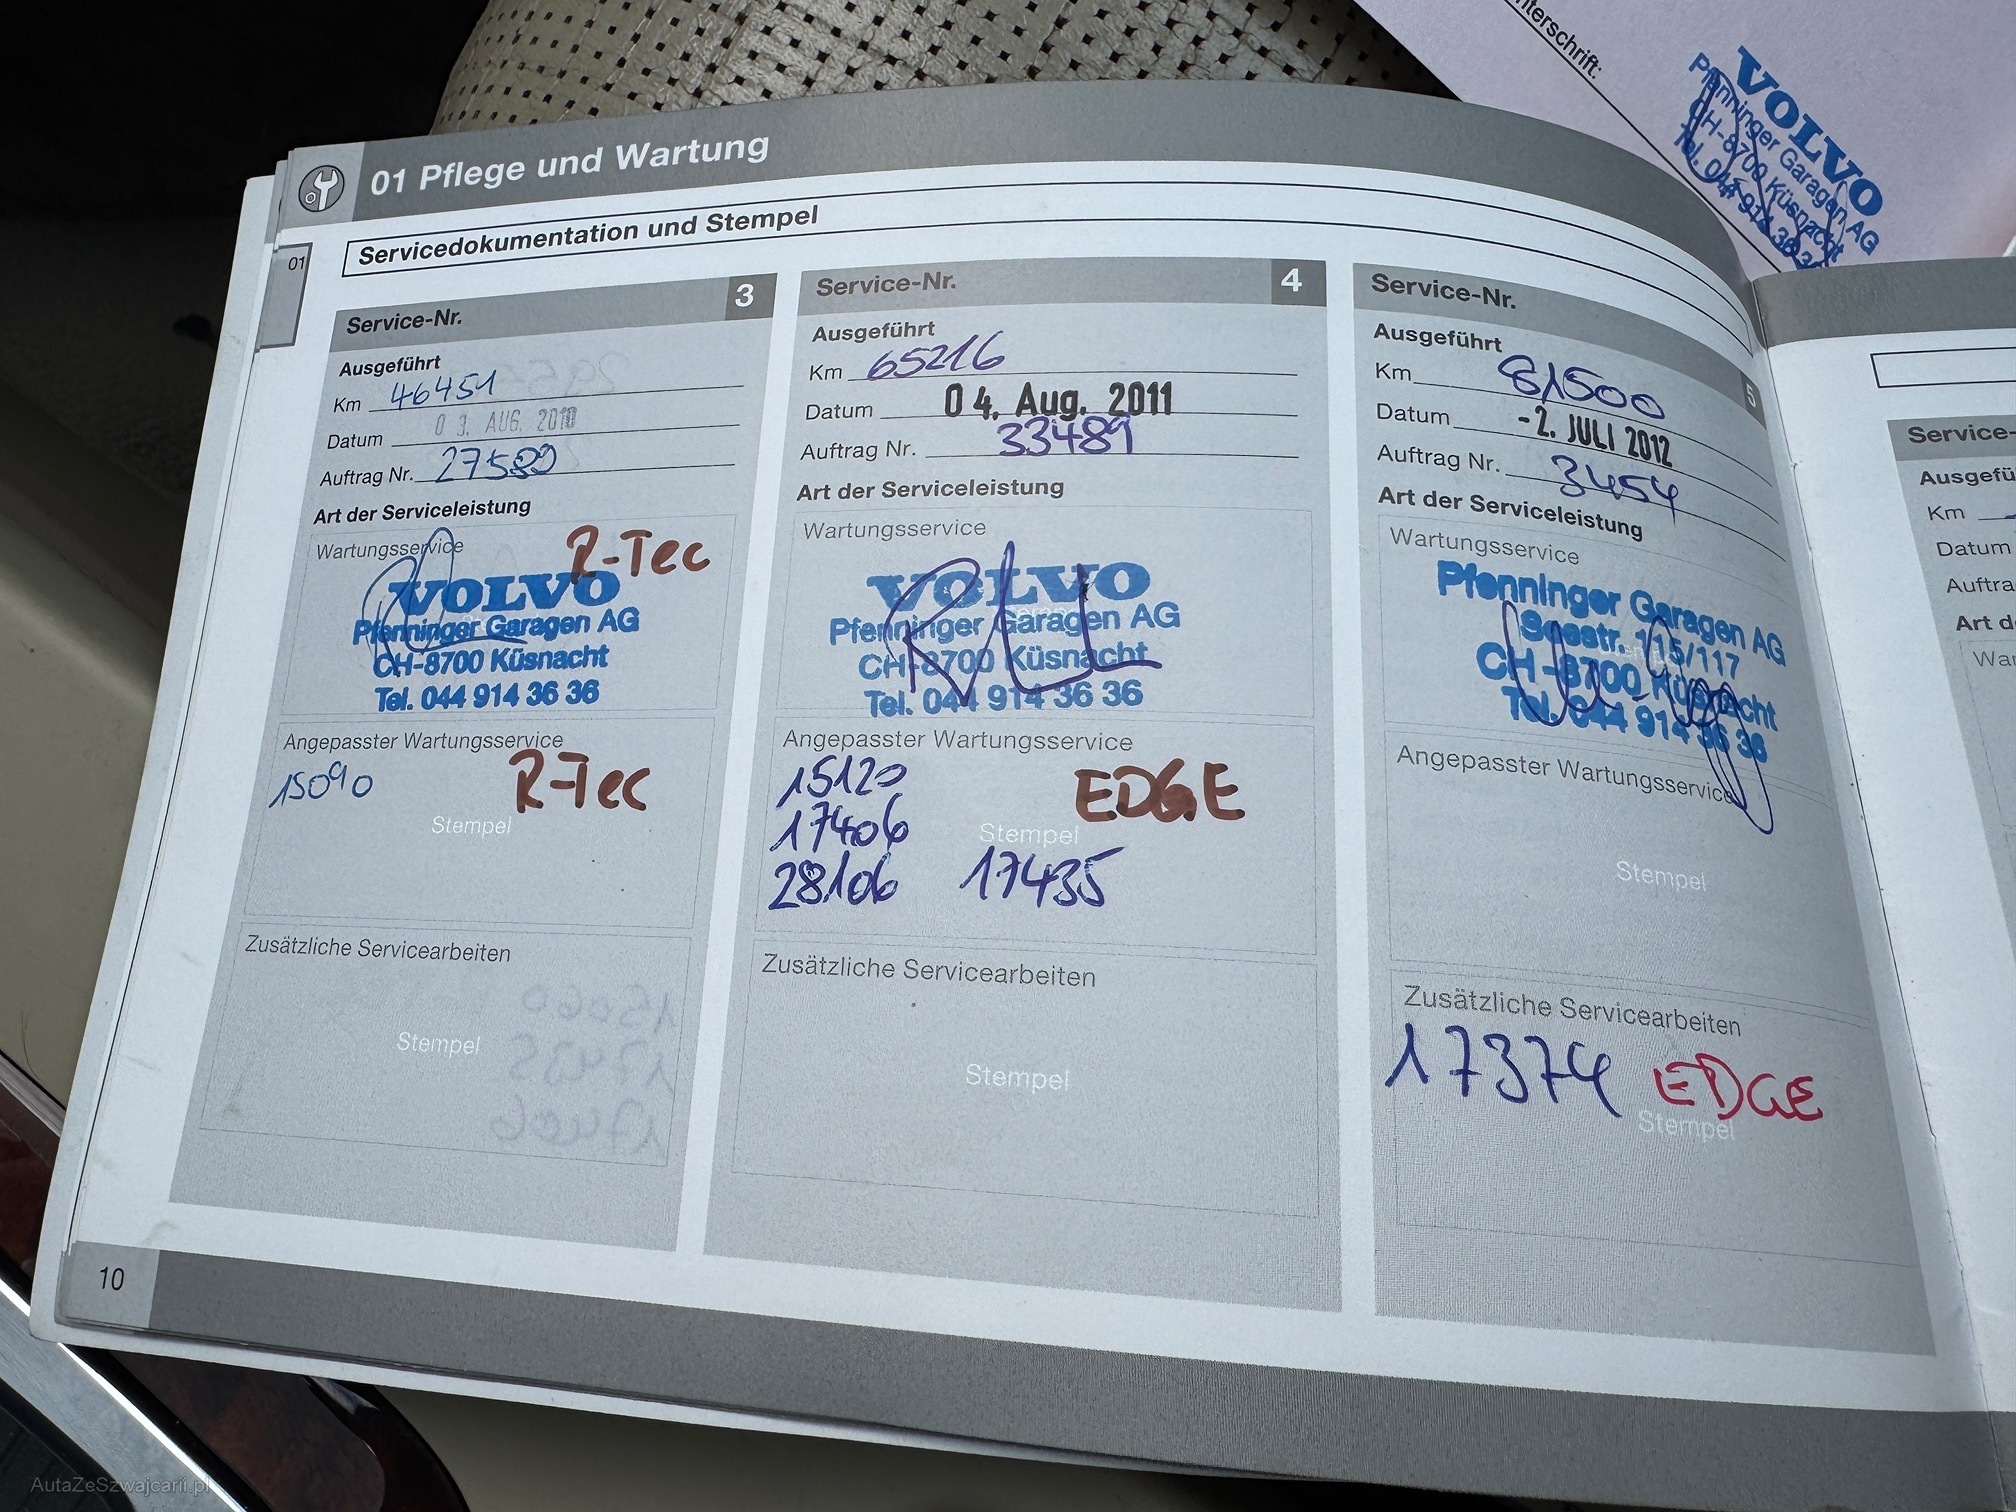 01 Pflege und Wartung
Servicedokumentation und Stempel
01
Service-Nr. 3
Ausgeführt
Km 46451
Datum 03. AUG. 2010
Auftrag Nr. 27589
Art der Serviceleistung
Wartungsservice
R-Tec
VOLVO
Pfenninger Garagen AG
CH-8700 Küsnacht
Tel. 044 914 36 36
Angepasster Wartungsservice
15090 R-Tec
Stempel
Zusätzliche Servicearbeiten
Stempel
Service-Nr. 4
Ausgeführt
Km 65216
Datum 04. Aug. 2011
Auftrag Nr. 33489
Art der Serviceleistung
Wartungsservice
VOLVO
Pfenninger Garagen AG
CH-8700 Küsnacht
Tel. 044 914 36 36
Angepasster Wartungsservice
15120 EDGE
17406
Stempel
28106 17435
Zusätzliche Servicearbeiten
Stempel
Service-Nr. 5
Ausgeführt
Km 81500
Datum -2. JULI 2012
Auftrag Nr. 3454
Art der Serviceleistung
Wartungsservice
Pfenninger Garagen AG
Seestr. 115/117
CH-8700 Küsnacht
Tel. 044 914 36 36
Angepasster Wartungsservice
Stempel
Zusätzliche Servicearbeiten
17374 EDGE
Stempel
10
VOLVO
Pfenninger Garagen AG
CH-8700 Küsnacht
Tel. 044 914 36 3
Service-
Km
Datum
AutaZeSzwajcarii.pl